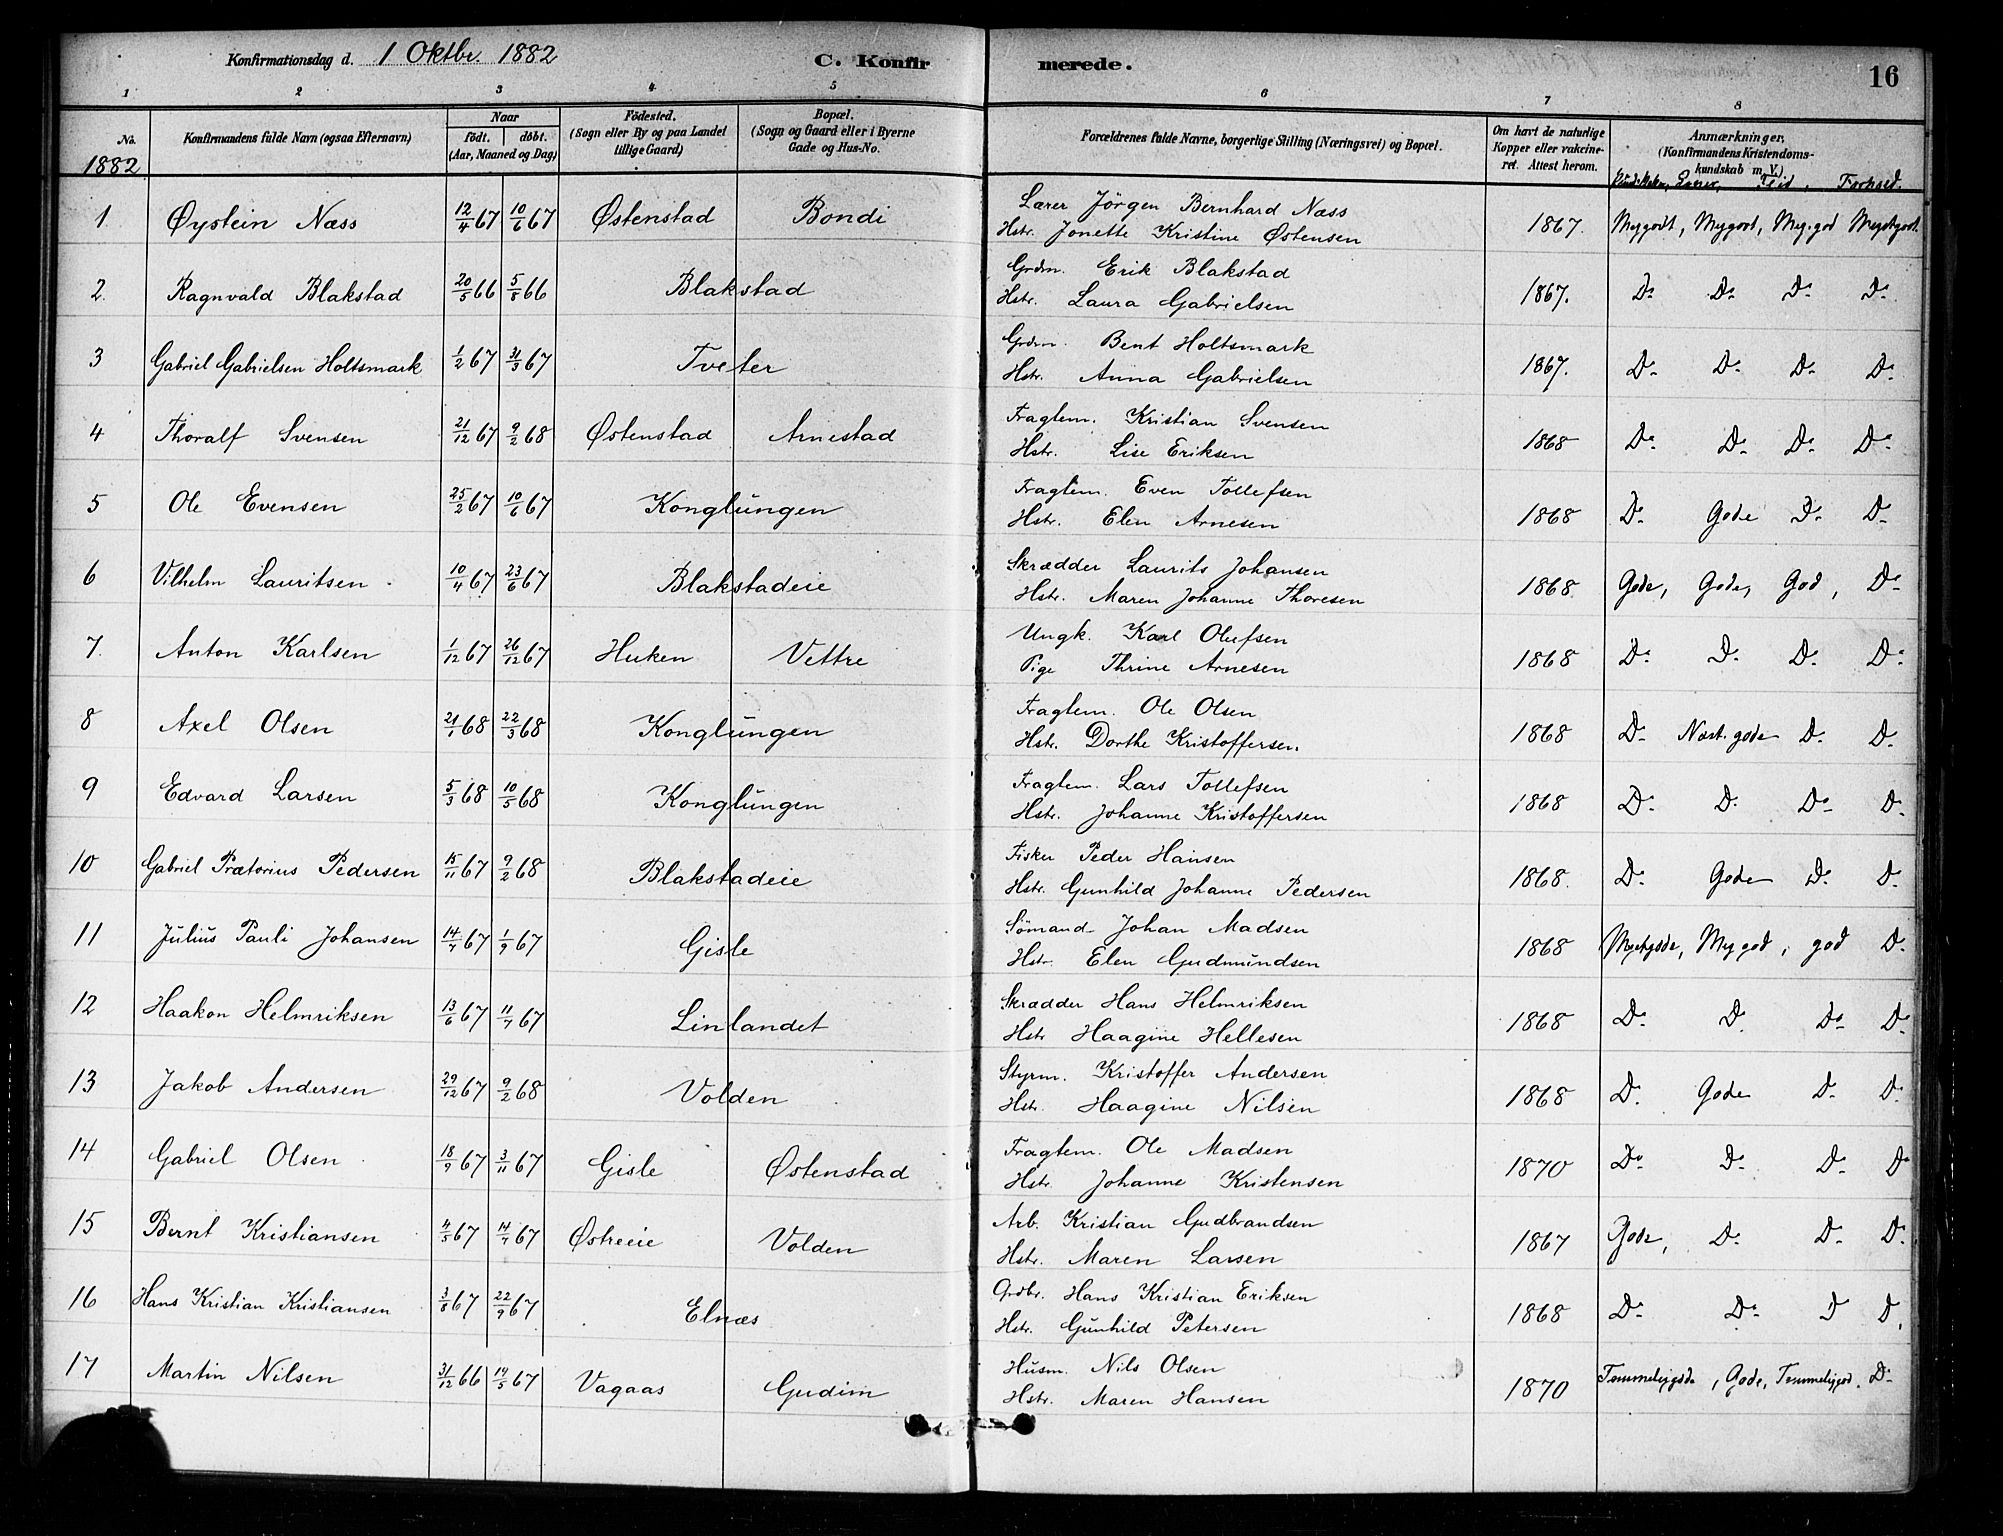 Konfirmationsdag d. 1 Oktbr. 1882 C. Konfir merede. 16
1 2 3 4 5 6 7 8
No. Konfirmandens fulde Navn (ogsaa Efternavn) Naar födt. döbt. (Aar, Maaned og Dag) Födested. (Sogn eller By og paa Landet tillige Gaard) Bopæl. (Sogn og Gaard eller i Byerne Gade og Hus-No. Forældrenes fulde Navne, borgerlige Stilling (Næringsvei) og Bopæl. Om havt de naturlige Kopper eller vakcineret. Attest herom. Anmærkninger, (Konfirmandens Kristendomskundskab m. V.)
1882 Evner, Flid, Forhold.
1 Øystein Næss 12/4 67 10/6 67 Østenstad Bondi Lærer Jörgen Bernhard Næss 1867. Megodt, Meg.god
Hstr. Jonette Kristine Østensen
2. Ragnvald Blakstad 20/5 66 5/8 66 Blakstad Grdm. Erik Blakstad 1867. Do Do Do Do
Hstr. Laura Gabrielsen
3 Gabriel Gabrielsen Holtsmark 1/2 67 31/3 67 Tveter Grdm. Bent Holtsmark 1867. Do Do Do Do
Hstr. Anna Gabrielsen
4 Thoralf Svensen 21/12 67 9/2 68 Østenstad Arnestad Fragtem. Kristian Svensen 1868 Do Do Do Do
Hstr. Lise Eriksen
5 Ole Evensen 25/2 67 10/6 67 Konglungen Fragtem. Even Tollefsen 1868 Do Gode Do Do
Hstr. Elen Arnesen
6 Vilhelm Lauritsen 10/4 67 23/6 67 Blakstadeie Skrædder Laurits Johansen 1868. Gode, Gode, God, Do
Hstr. Maren Johanne Thoresen
7. Anton Karlsen 1/12 67 26/12 67 Huken Vettre Ungk. Karl Olufsen 1868 Do Do Do Do
Pige Thrine Arnesen
8 Axel Olsen 21/1 68 22/3 68 Konglungen Fragtem. Ole Olsen 1868 Do Næst. gode Do Do
Hstr. Dorthe Kristoffersen.
9 Edvard Larsen 5/3 68 10/5 68 Konglungen Fragtem. Lars Tollefsen 1868 Do Do Do Do
Hstr. Johanne Kristoffersen
10 Gabriel Prætorius Pedersen 15/11 67 9/2 68 Blakstadeie Fisker Peder Hansen 1868. Do Gode Do Do
Hstr. Gunhild Johanne Pedersen
11 Julius Pauli Johansen 14/7 67 1/9 67 Gisle Sömand Johan Madsen 1868 Megetgode, Meg god, god Do
Hstr. Elen Gudmundsen
12 Haakon Helmriksen 13/6 67 11/7 67 Linlandet Skrædder Hans Helmriksen 1868 Do Do Do Do
Hstr Haagine Hellesen
13 Jakob Andersen 29/12 67 9/2 68 Volden Styrm. Kristoffer Andersen 1868 Do. Gode Do Do
Hstr. Haagine Nilsen
14 Gabriel Olsen 18/9 67 3/11 67 Gisle Østenstad Fragtem. Ole Madsen 1870 Do Do Do Do
Hstr. Johanne Kristensen
15 Bernt Kristiansen 4/5 67 14/7 67 Østreeie Volden Arb. Kristian Gudbrandsen 1867 Gode, Do Do Do
Hstr. Maren Larsen
16 Hans Kristian Kristiansen 3/8 67 22/9 67 Elnæs Grdbr. Hans Kristian Eriksen 1868 Do Do D D.
Hstr. Gunhild Petersen
17 Martin Nilsen 31/12 66 19/5 67 Vagaas Gudim Husm. Nils Olsen 1870 Temmeliggode, Gode, Temmeliggod. Do
Hstr. Maren Hansen